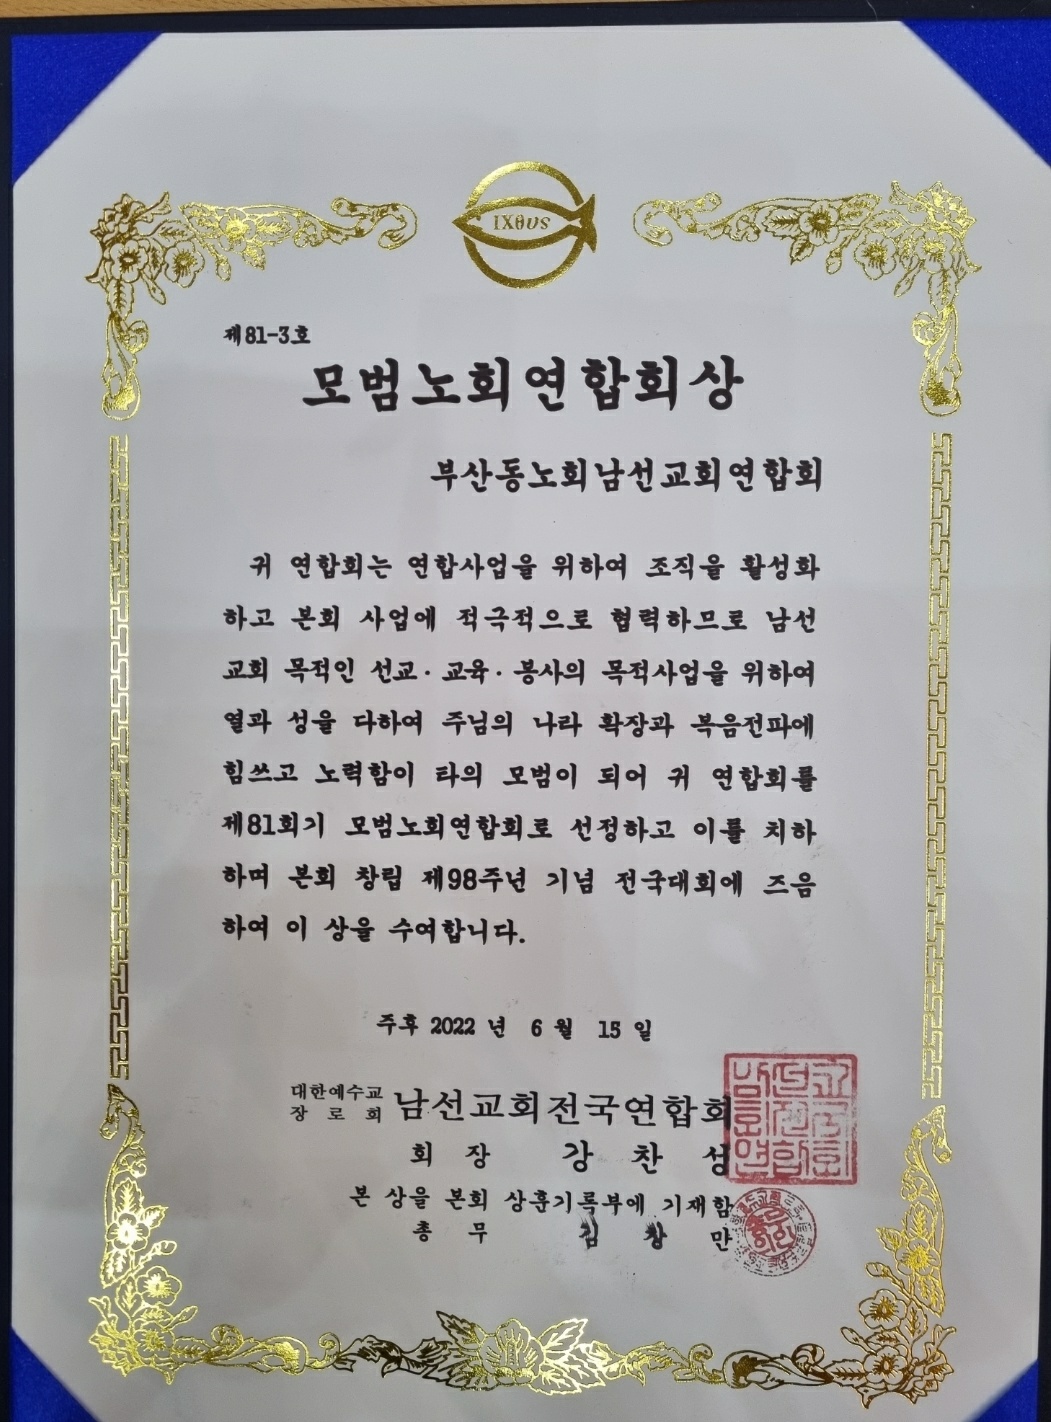 ΙΧθυς
제81-3호
모범노회연합회상
부산동노회남선교회연합회
귀 연합회는 연합사업을 위하여 조직을 활성화
하고 본회 사업에 적극적으로 협력하므로 남선
교회 목적인 선교·교육·봉사의 목적사업을 위하여
열과 성을 다하여 주님의 나라 확장과 복음전파에
힘쓰고 노력함이 타의 모범이 되어 귀 연합회를
제81회기 모범노회연합회로 선정하고 이를 치하
하며 본회 창립 제98주년 기념 전국대회에 즈음
하여 이 상을 수여합니다.
주후 2022 년 6 월 15 일
대한예수교
장로회 남선교회전국연합회
회 장 강 찬 성
본 상을 본회 상훈기록부에 기재함
총 무 김 창 만